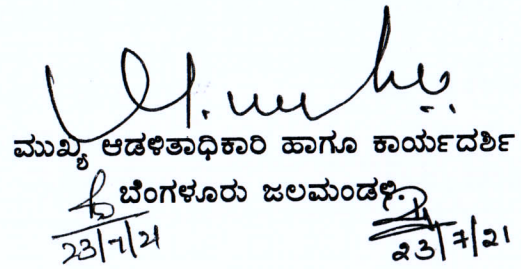 ಮುಖ್ಯ ಆಡಳಿತಾಧಿಕಾರಿ ಹಾಗೂ ಕಾರ್ಯದರ್ಶಿ
ಬೆಂಗಳೂರು ಜಲಮಂಡಳಿ.
23/7/21 23/7/21